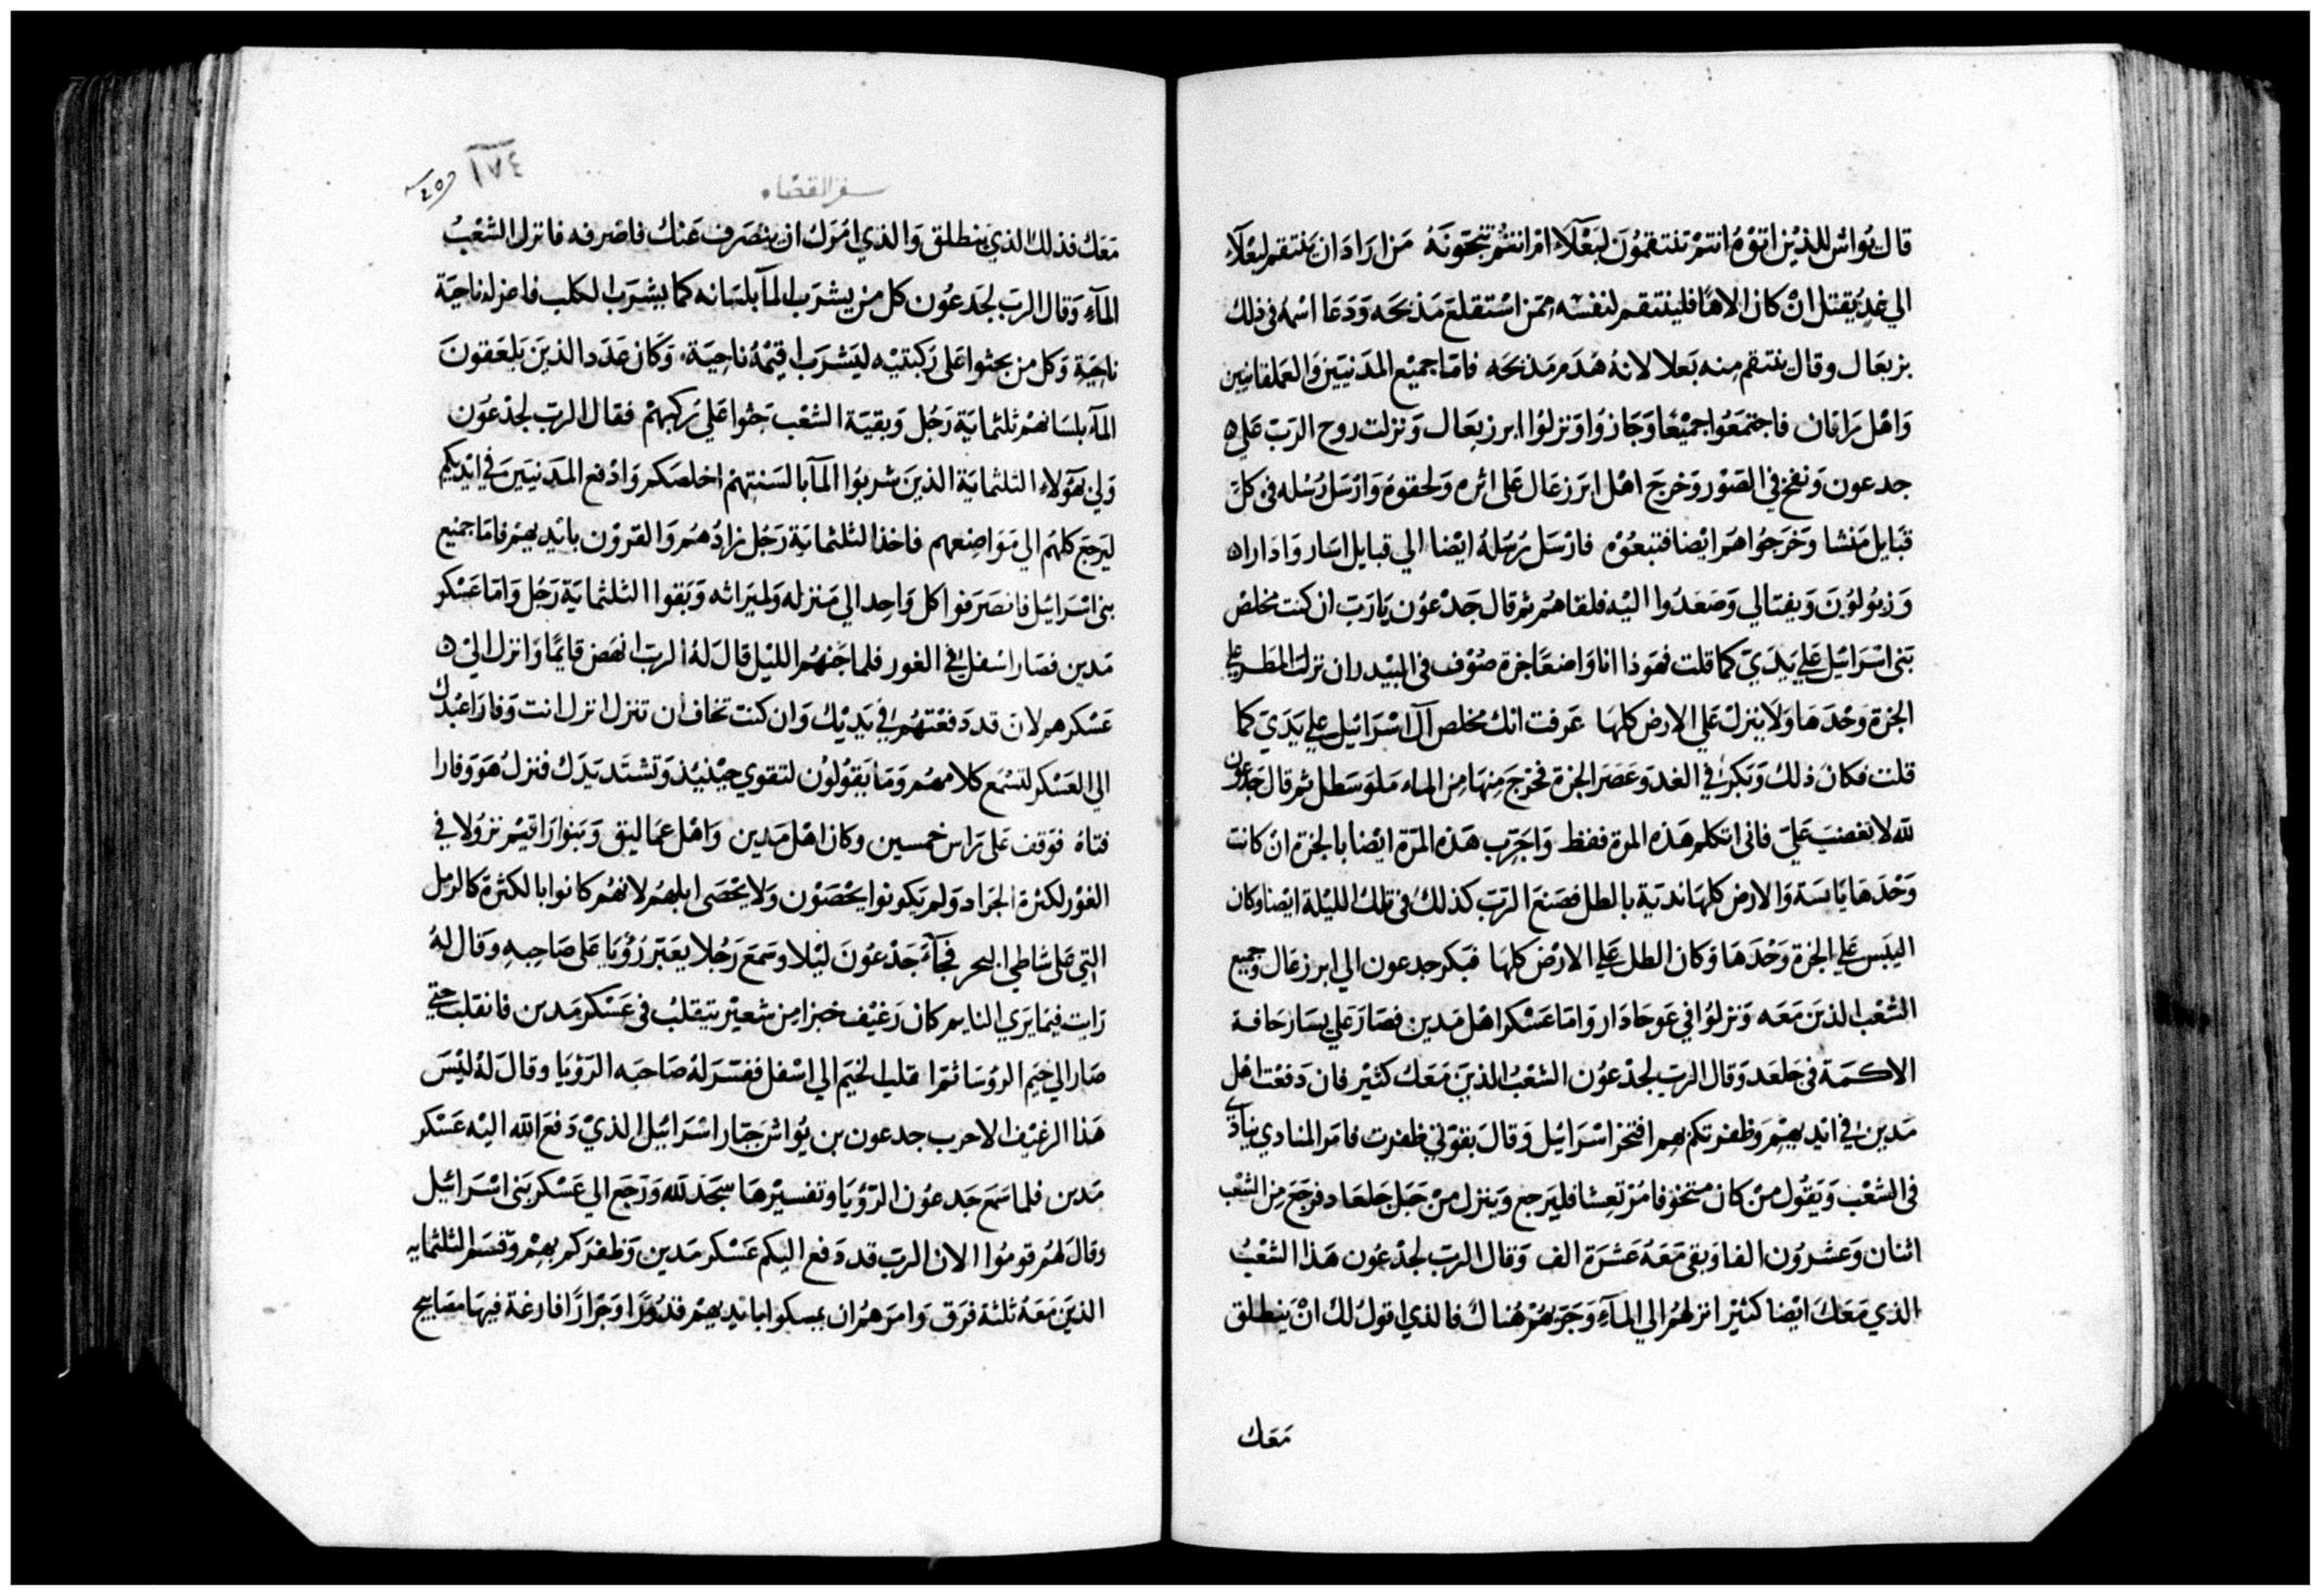 قال يواش للذين اتوه انتم تنتقمون لبعلا ام انتم تنجونه من اراد ان ينتقم لبعلا
الي غد يقتل ان كان الاها فلينتقم لنفسه ممن استقلع مذبحه ودعا اسمه في ذلك
بزبعال وقال ينتقم منه بعلا لانه هدم مذبحه فاما جميع المدنيين والعملقانيين
واهل راقان فاجتمعوا جميعا وجازوا ونزلوا ابرزبعال ونزلت روح الرب علي
جدعون ونفخ في الصور وخرج اهل ابرزعال علي اثره ولحقوه وارسل رسله في كل
قبايل منشا وخرجوا هم ايضا فتبعوه فارسل رسله ايضا الي قبايل اسار وادارا
وزبولون ونفتالي وصعدوا اليه فلقاهم ثم قال جدعون يارب ان كنت مخلص
بني اسرائيل علي يدي كما قلت فهوذا انا واضعا جزة صوف في البيدر ان نزل المطر علي
الجزة وحدها ولا ينزل علي الارض كلها عرفت انك مخلص آل اسرائيل علي يدي كما
قلت فكان ذلك وبكر في الغد وعصر الجزة فخرج منها من الماء ملو سطل ثم قال جدعون
لله لا تغضب علي فاني اتكلم هذه المرة فقط واجرب هذه المرة ايضا بالجزة ان كانت
وحدها يابسة والارض كلها ندية بالطل فصنع الرب كذلك في تلك الليلة ايضا وكان
اليبس علي الجزة وحدها وكان الطل علي الارض كلها فبكر جدعون الي ابرزعال وجميع
الشعب الذين معه ونزلوا في عوجادار واما عسكر اهل مدين فصار علي يسار حافة
الاكمة في جلعد وقال الرب لجدعون الشعب الذين معك كثير فان دفعت اهل
مدين في ايديهم وظفرتكم بهم افتخر اسرائيل وقال بقوتي ظفرت فامر المنادي ينادي
في الشعب ويقول من كان متخوفا مرتعشا فليرجع وينزل من جبل جلعاد فرجع من الشعب
اثنان وعشرون الفا وبقي معه عشرة الف وقال الرب لجدعون هذا الشعب
الذي معك ايضا كثير انزلهم الي الماء وجربهم هناك فالذي اقول لك ان ينطلق
معك
١٧٤
سفر القضاه
معك فذلك الذي ينطلق والذي امرك ان ينصرف عنك فاصرفه فانزل الشعب
الماء وقال الرب لجدعون كل من يشرب الماء بلسانه كما يشرب الكلب فاعزله ناحية
ناحية وكل من يجثوا علي ركبتيه ليشرب اقيمه ناحية وكان عدد الذين يلعقون
الماء بلسانهم ثلثماية رجل وبقية الشعب جثوا علي ركبهم فقال الرب لجدعون
ولي هولاء الثلثماية الذين شربوا الماء بالسنتهم اخلصكم وادفع المدنيين في ايديكم
ليرجع كلهم الي مواضعهم فاخذ الثلثماية رجل زادهم والقرون بايديهم فاما جميع
بني اسرائيل فانصرفوا كل واحد الي منزله ولميراثه وبقوا الثلثماية رجل واما عسكر
مدين فصار اسفل في الغور فلما جنهم الليل قال له الرب انهض قايما وانزل الي
عسكرهم لان قد دفعتهم في يديك وان كنت تخاف ان تنزل انزل انت وفارا عبدك
الي العسكر لتسمع كلامهم وما يقولون لتقوي حينيذ وتشتد يدك فنزل هو وفارا
فتاه فوقف علي راس خمسين وكان اهل مدين واهل عماليق وبنوا راقيم نزولا في
الغور لكثرة الجراد ولم يكونوا يحصون ولا يحصى ابلهم لانهم كانوا بالكثرة كالرمل
التي علي شاطي البحر فجاء جدعون ليلا وسمع رجلا يعبر رؤيا علي صاحبه وقال له
رايت فيما يري النايم كان رغيف خبزا من شعير يتقلب في عسكر مدين فانقلب حتي
صار الي خيم الروسا ثم قلب الخيم الي اسفل ففسر له صاحبه الرؤيا وقال له ليس
هذا الرغيف الا حرب جدعون بن يواش جبار اسرائيل الذي دفع الله اليه عسكر
مدين فلما سمع جدعون الرؤيا وتفسيرها سجد لله ورجع الي عسكر بني اسرائيل
وقال لهم قوموا الان الرب قد دفع اليكم عسكر مدين وظفركم بهم وقسم الثلثمايه
الذين معه ثلثة فرق وامرهم ان يمسكوا بايديهم قدورا وجرارا فارغة فيها مصابيح